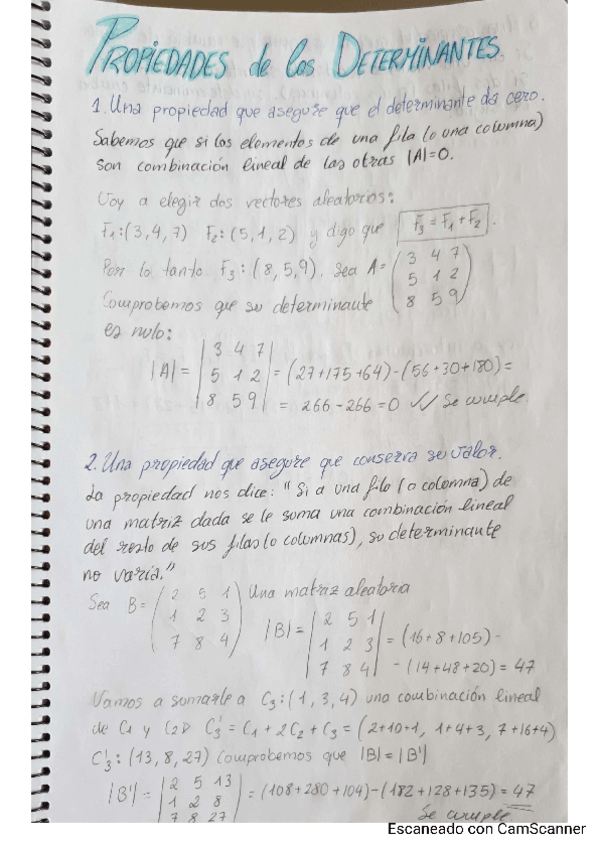 PROPIEDADES de los DETERMINANTES
1. Una propiedad que asegure que el determinante da cero.
Sabemos que si los elementos de una fila (o una columna)
son combinación lineal de las otras |A|=0.
Voy a elegir dos vectores aleatorios:
F₁:(3,4,7) F₂:(5,1,2) y digo que F₃=F₁+F₂.
Por lo tanto F₃:(8,5,9). Sea A=
3 4 7
5 1 2
8 5 9
Comprobemos que su determinante
es nulo:
|A|=
3 4 7
5 1 2
8 5 9
=(27+175+64)-(56+30+180)=
= 266-266=0 ✓✓ Se cumple.
2. Una propiedad que asegure que conserva su valor.
La propiedad nos dice: "Si a una fila (o columna) de
una matriz dada se le suma una combinación lineal
del resto de sus filas (o columnas), su determinante
no varía."
Sea B=
2 5 1
1 2 3
7 8 4
Una matriz aleatoria
|B|=
2 5 1
1 2 3
7 8 4
=(16+8+105)-
-(14+48+20)=47
Vamos a sumarle a C₃:(1,3,4) una combinación lineal
de C₁ y C₂ C₃'=C₁+2C₂+C₃=(2+10+1, 1+4+3, 7+16+4)
C₃':(13,8,27) Comprobemos que |B|=|B'|
|B'|=
2 5 13
1 2 8
7 8 27
=(108+280+104)-(182+128+135)=47
Se cumple
Escaneado con CamScanner